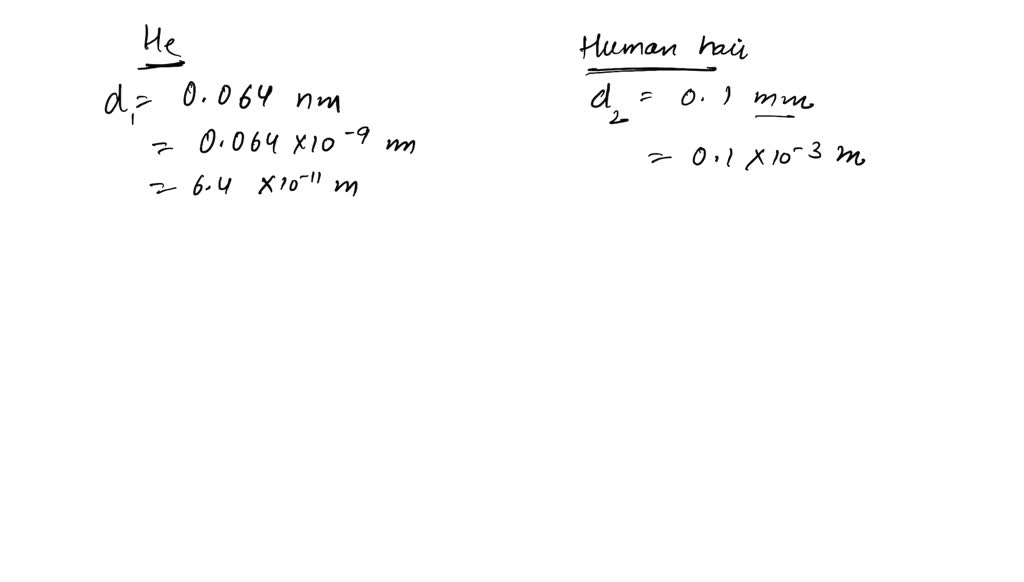 He
d₁ = 0.064 nm
= 0.064 × 10⁻⁹ m
= 6.4 × 10⁻¹¹ m
Human hair
d₂ = 0.1 mm
= 0.1 × 10⁻³ m